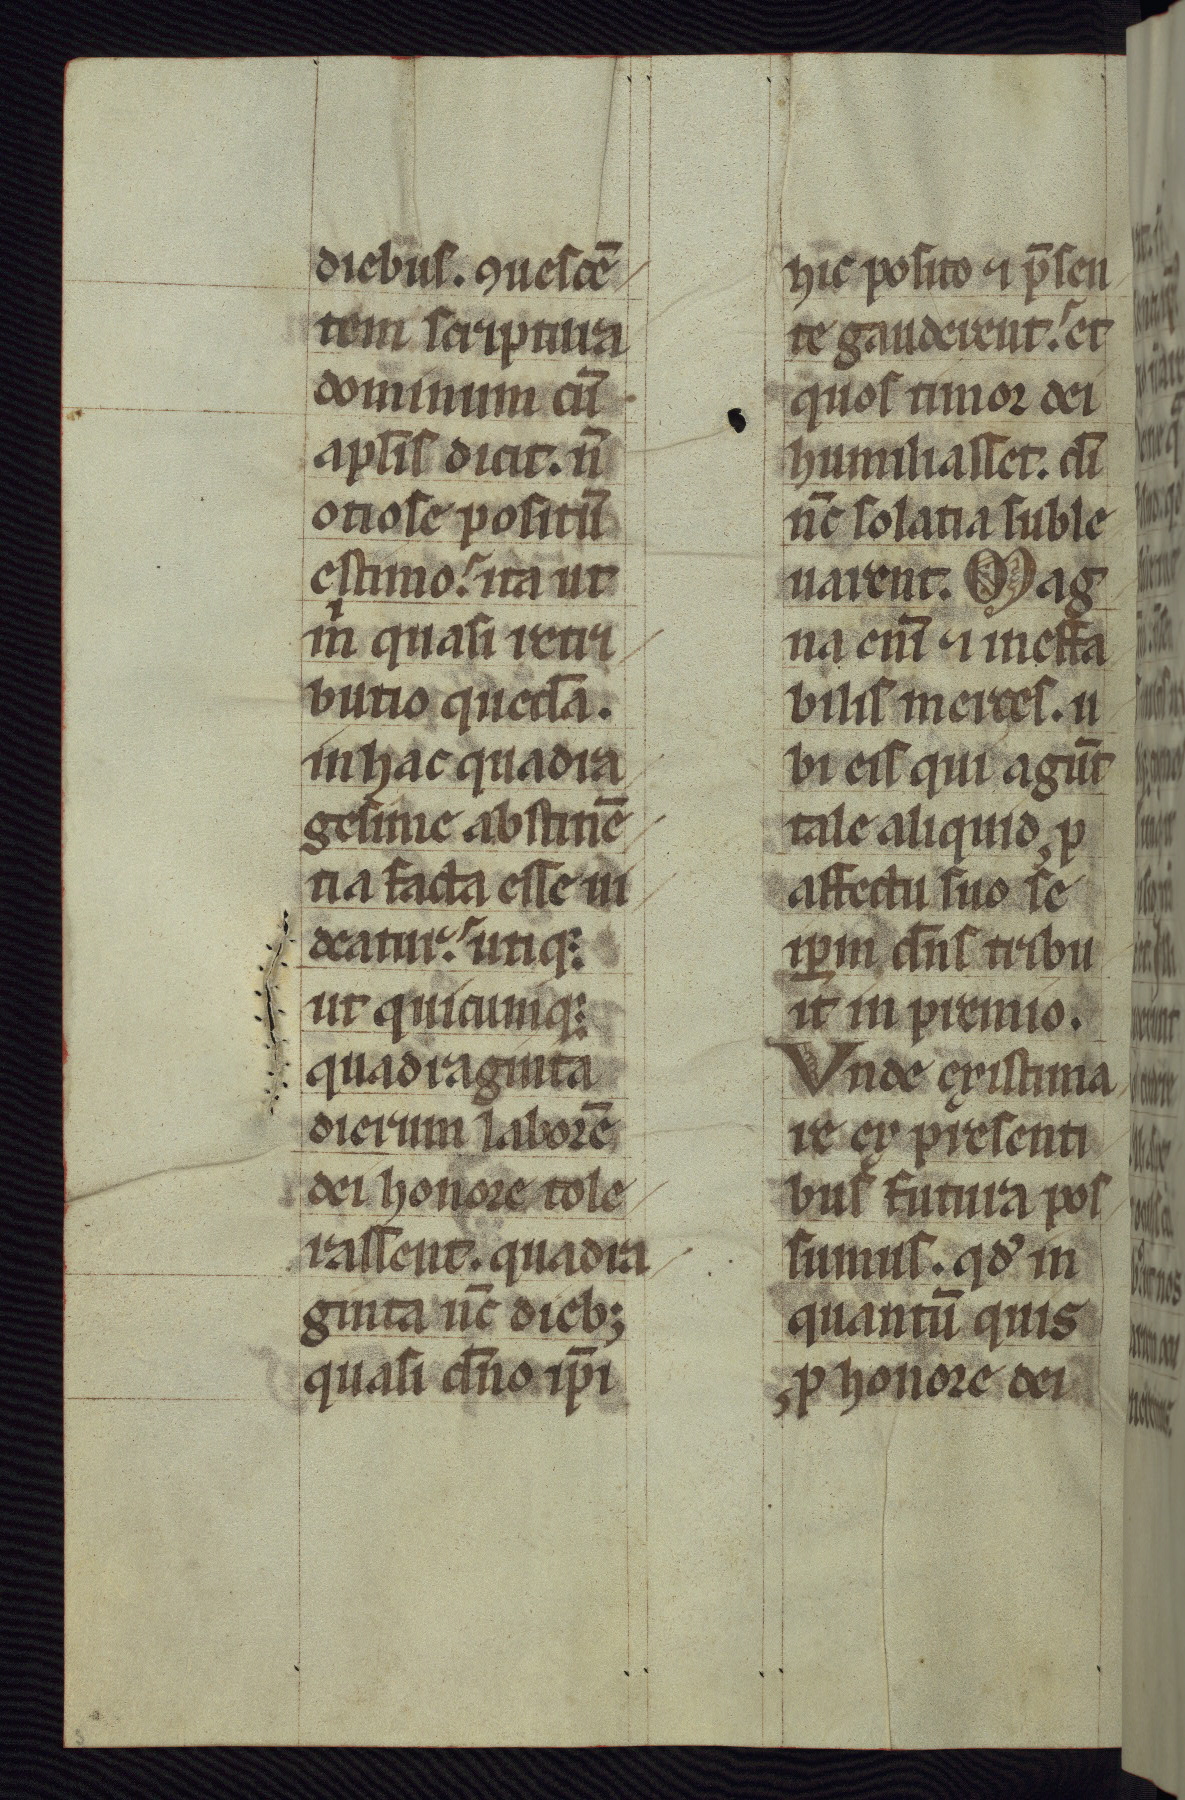 diebus. ꝯuescē
tem scriptura
dominum cū
apl̄is dicit. n̄
otiose positū
estimo. ita ut
in quasi retri
butio queda̅.
in hac quadra
gesime abstinē
tia facta esse ui
deatur. utiq;
ut quicumq;
quadraginta
dierum laborē
dei honore tole
rassent. quadra
ginta nc̄ dieb;
quasi dn̄o ip̄i
hic posito ⁊ p̄sen
te gauderent. et
quos timor dei
humiliasset. di
nc̄ solatia suble
uarent. Mag
na eni̅ ⁊ ineffa
bilis merces. u
bi eis qui agūt
tale aliquid, ꝓ
affectu suo se
ipm dn̄s tribu
it in premio.
Vnde existima
re ex presenti
bus futura pos
sumus. qd' in
quantū quis
ꝓ honore dei